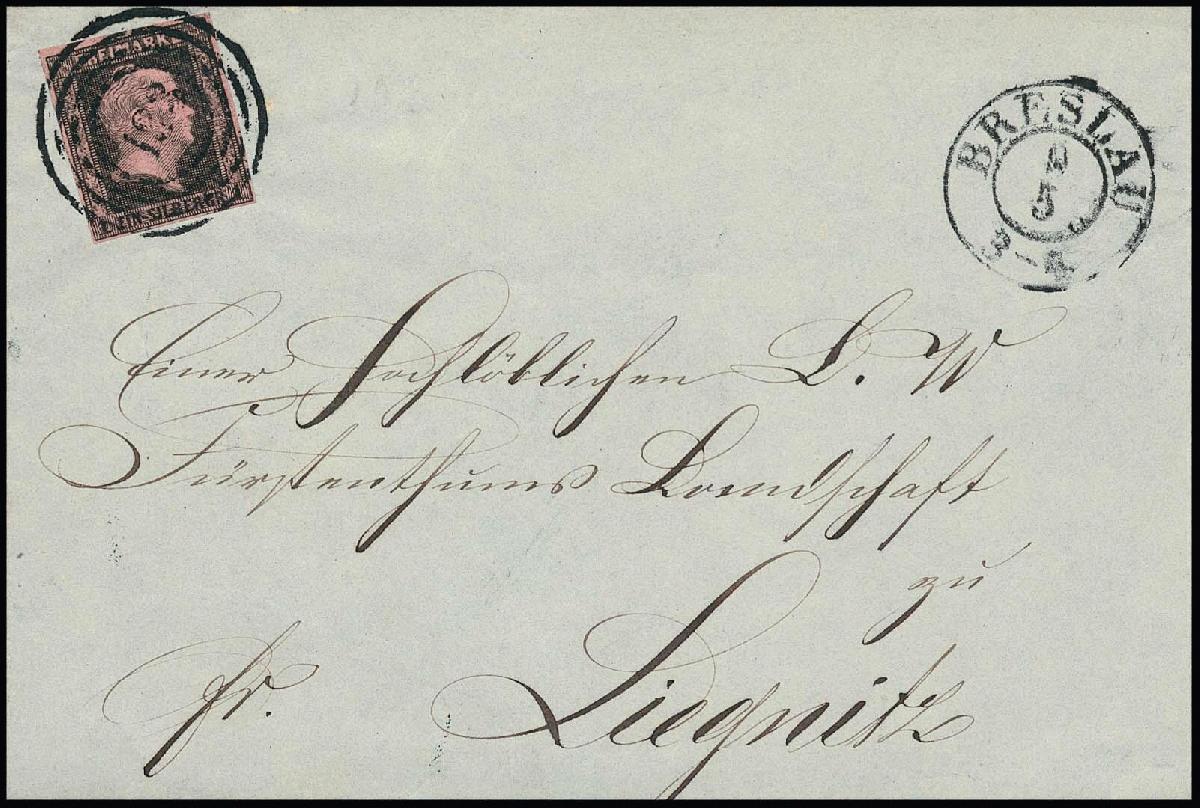 FREIMARKE
1 EIN SILBERGR. 1
BRESLAU
2
5
3-4
Einer Hochlöblichen L. W
Fürstenthums Landschaft
zu
fr. Liegnitz